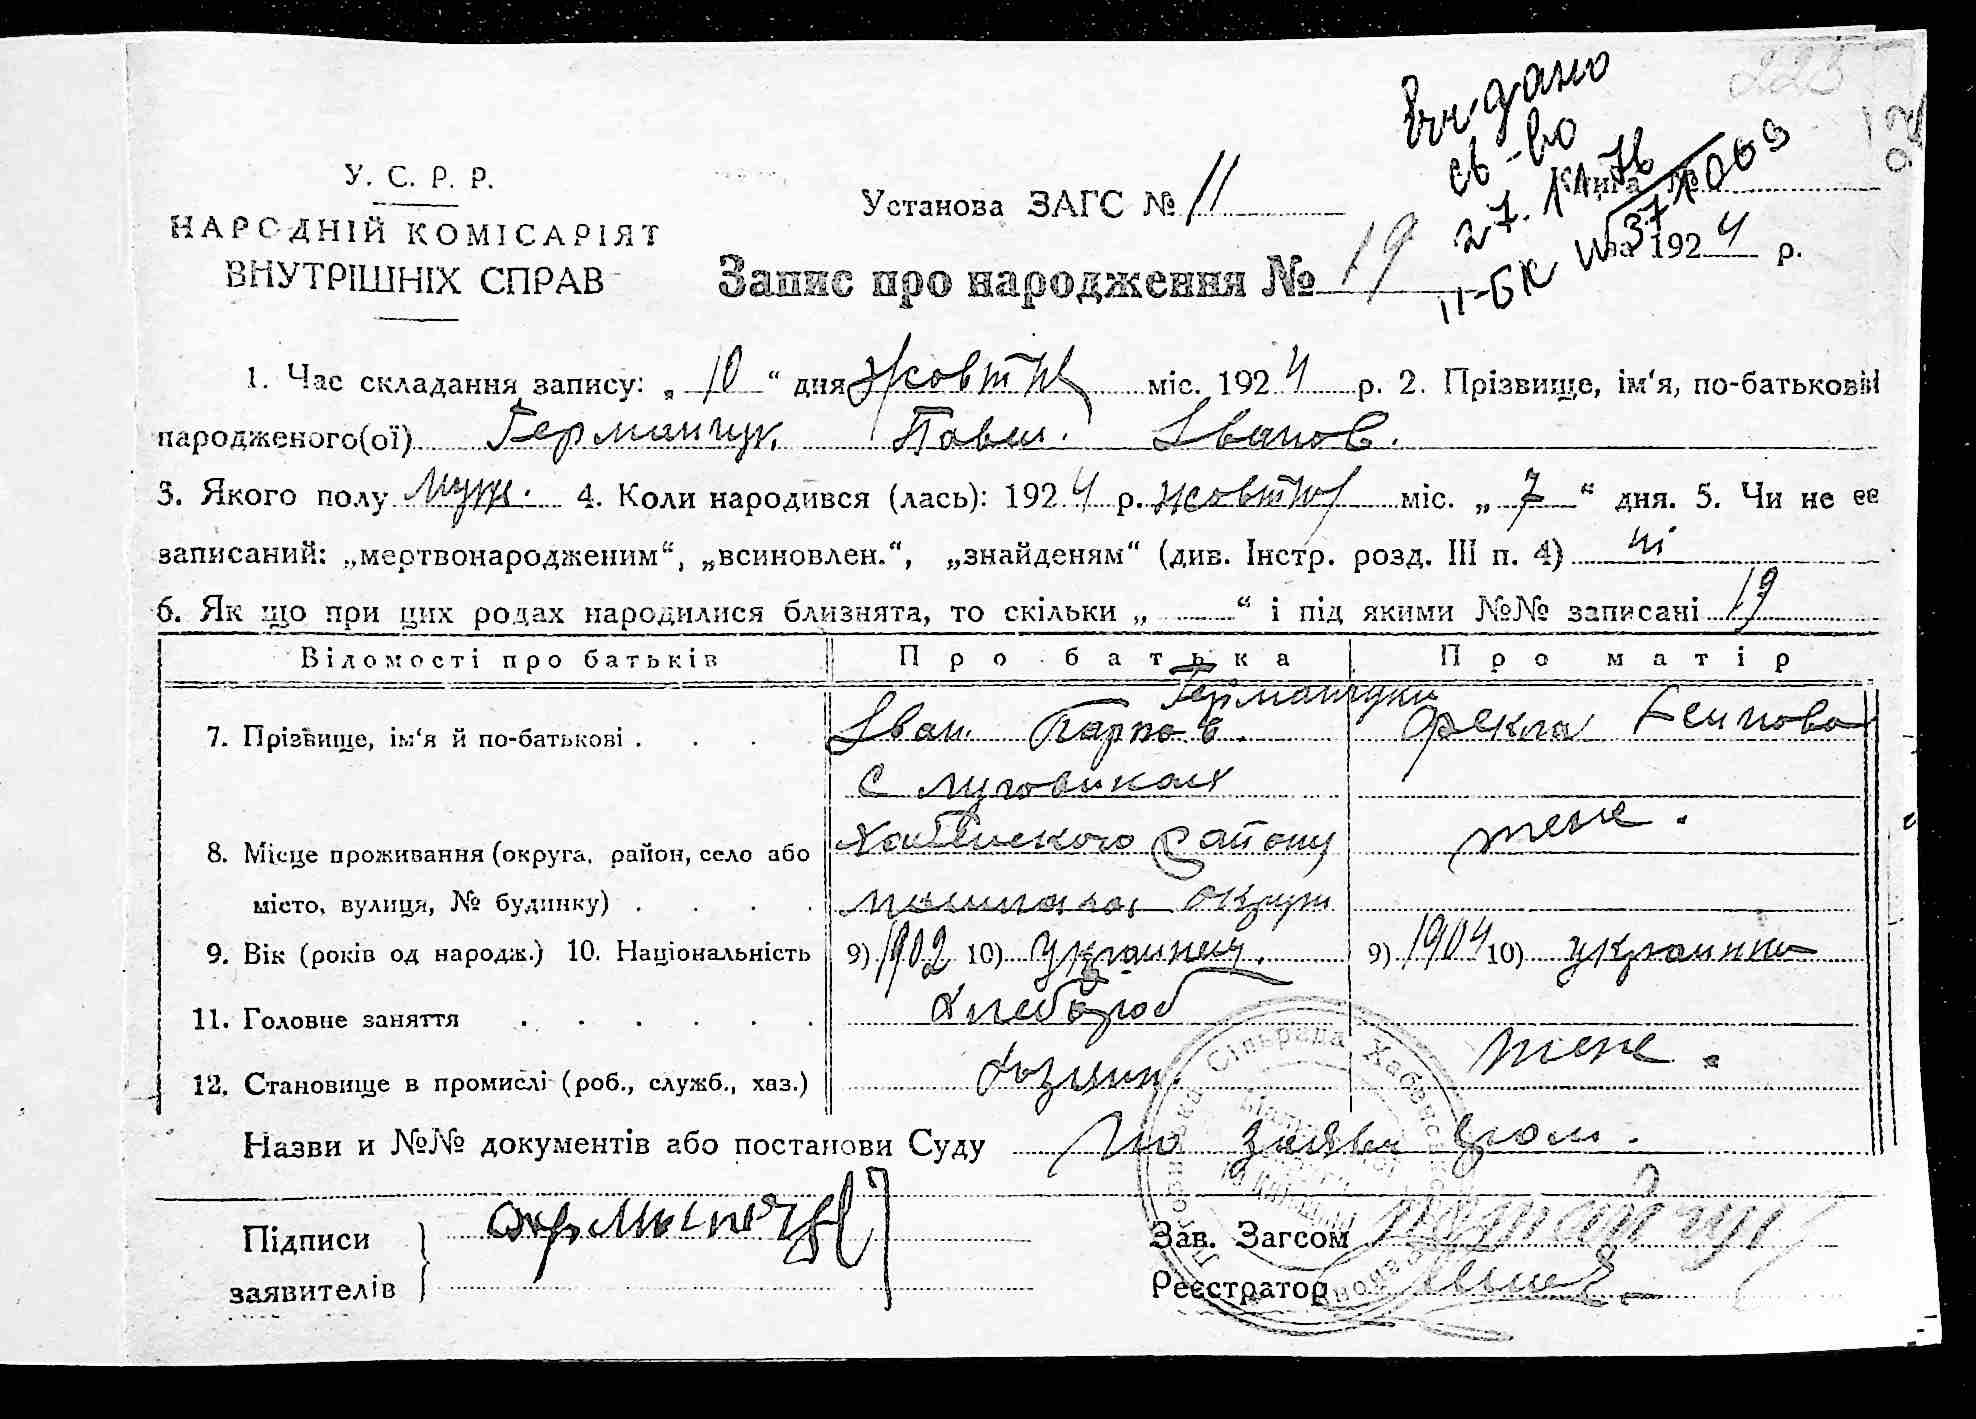 223
Видано
св-во
27.11.76
ІІ-БК № 371069
У. С. Р. Р.
НАРОДНІЙ КОМІСАРІЯТ
ВНУТРІШНІХ СПРАВ
Установа ЗАГС № 11
Книга №
на 1924 р.
Запис про народження № 19
1. Час складання запису: „ 10 “ дня Жовтня міс. 1924 р. 2. Прізвище, ім‘я, по-батькові
народженого(ої) Германчук Павл. Іванов.
3. Якого полу Муж. 4. Коли народився (лась): 1924 р. жовтня міс. „ 7 “ дня. 5. Чи не є
записаний: „мертвонародженим“, „всиновлен.“, „знайденям“ (див. Інстр. розд. III п. 4) ні
6. Як що при цих родах народилися близнята, то скільки „ “ і під якими №№ записані 19
Відомості про батьків Про батька Про матір
Германчуки
7. Прізвище, ім‘я й по-батькові . . . . Іван Карпов. Фекла
с Луговиках
8. Місце проживання (округа, район, село або Хабенского району теже.
місто, вулиця, № будинку) . . . . округи
9. Вік (років од народж.) 10. Національність 9) 1902 10) українец. 9) 1904 10) украинка
11. Головне заняття . . . . . . Хлебороб
12. Становище в промислі (роб., служб., хаз.) Хозяин. теже.
Назви и №№ документів або постанови Суду По заяви
Підписи
заявителів
Зав. Загсом
Реєстратор
Сільрада Хабенського